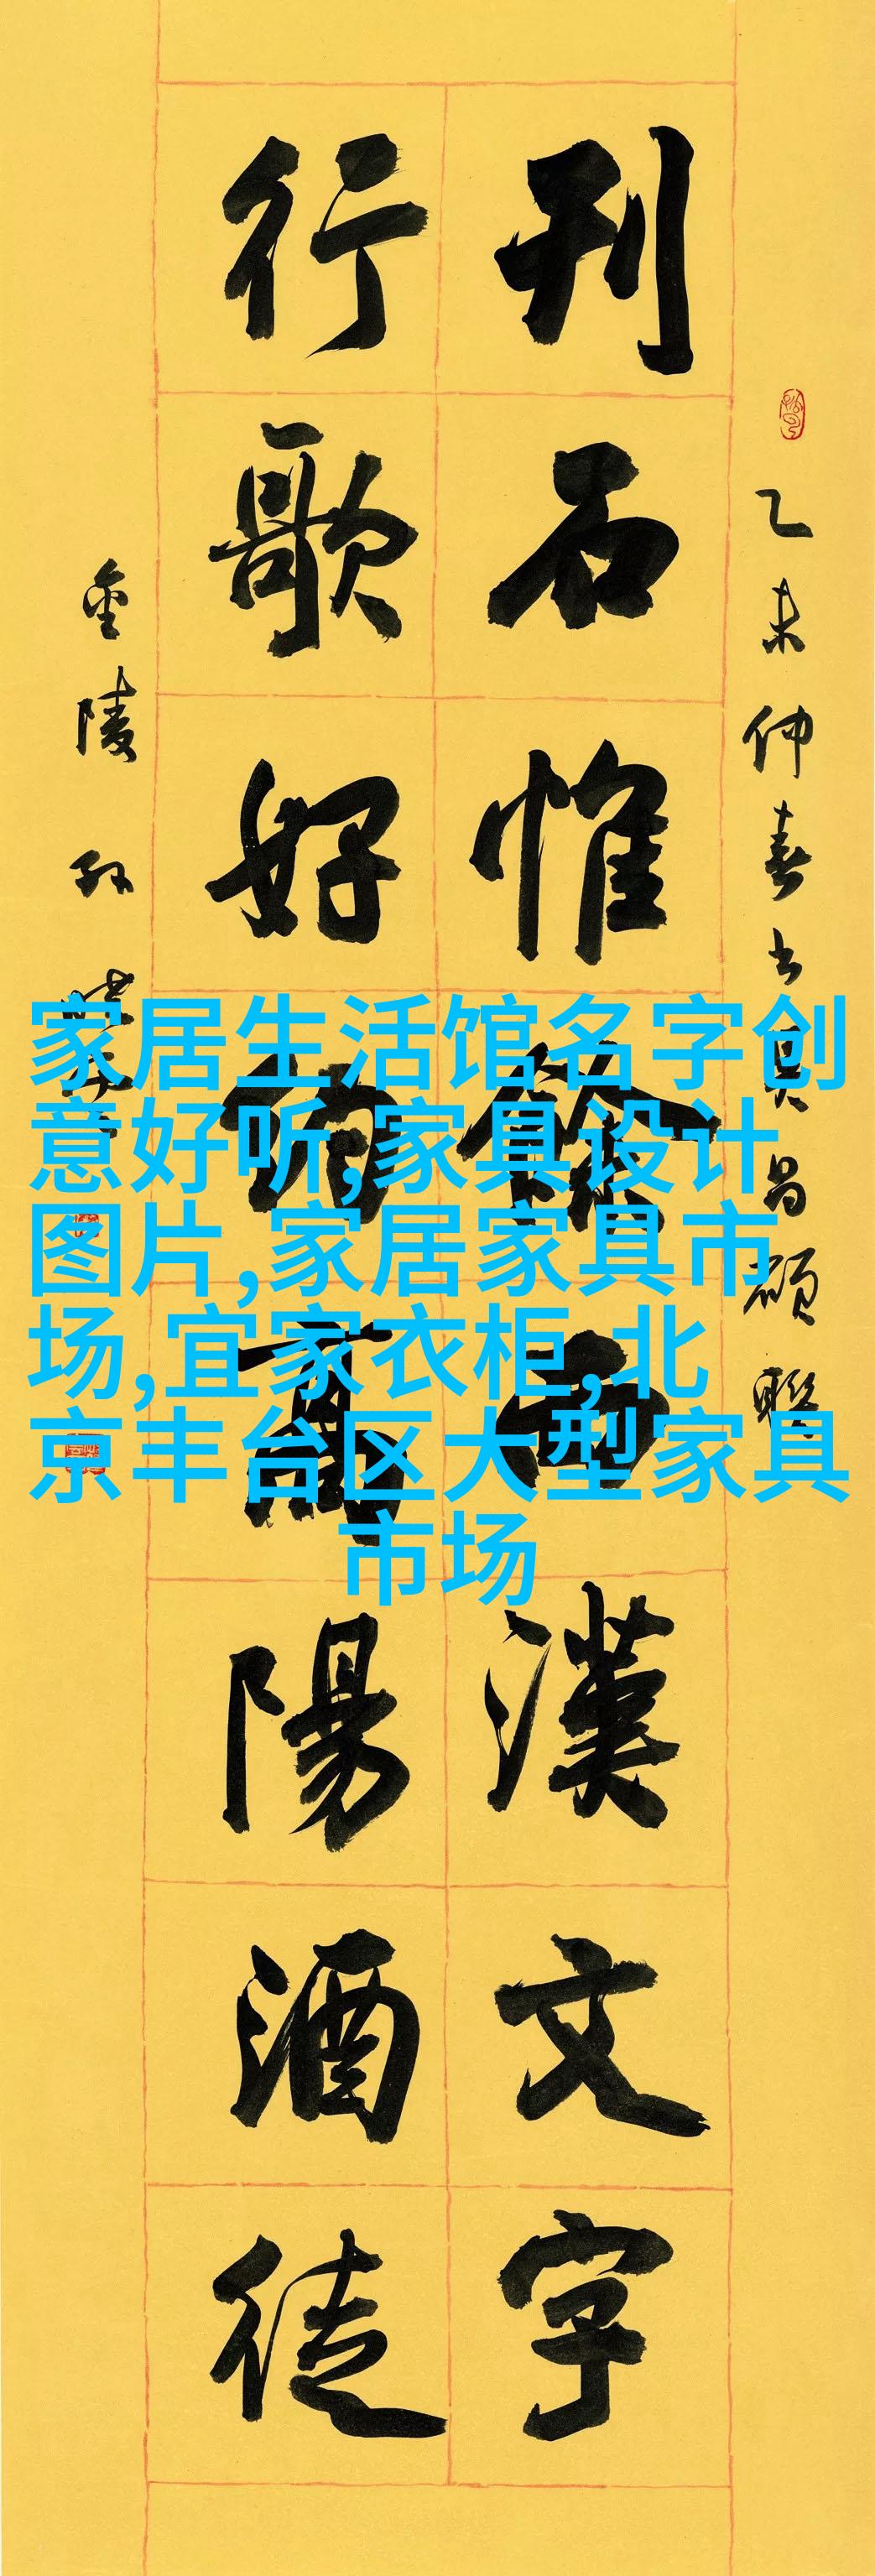 乙未仲春书吴昌硕联
刊石惟餘西漢文字
行歌好約高陽酒徒
金陵孙晓云
家居生活馆名字创
意好听,家具设计
图片,家居家具市
场,宜家衣柜,北
京丰台区大型家具
市场